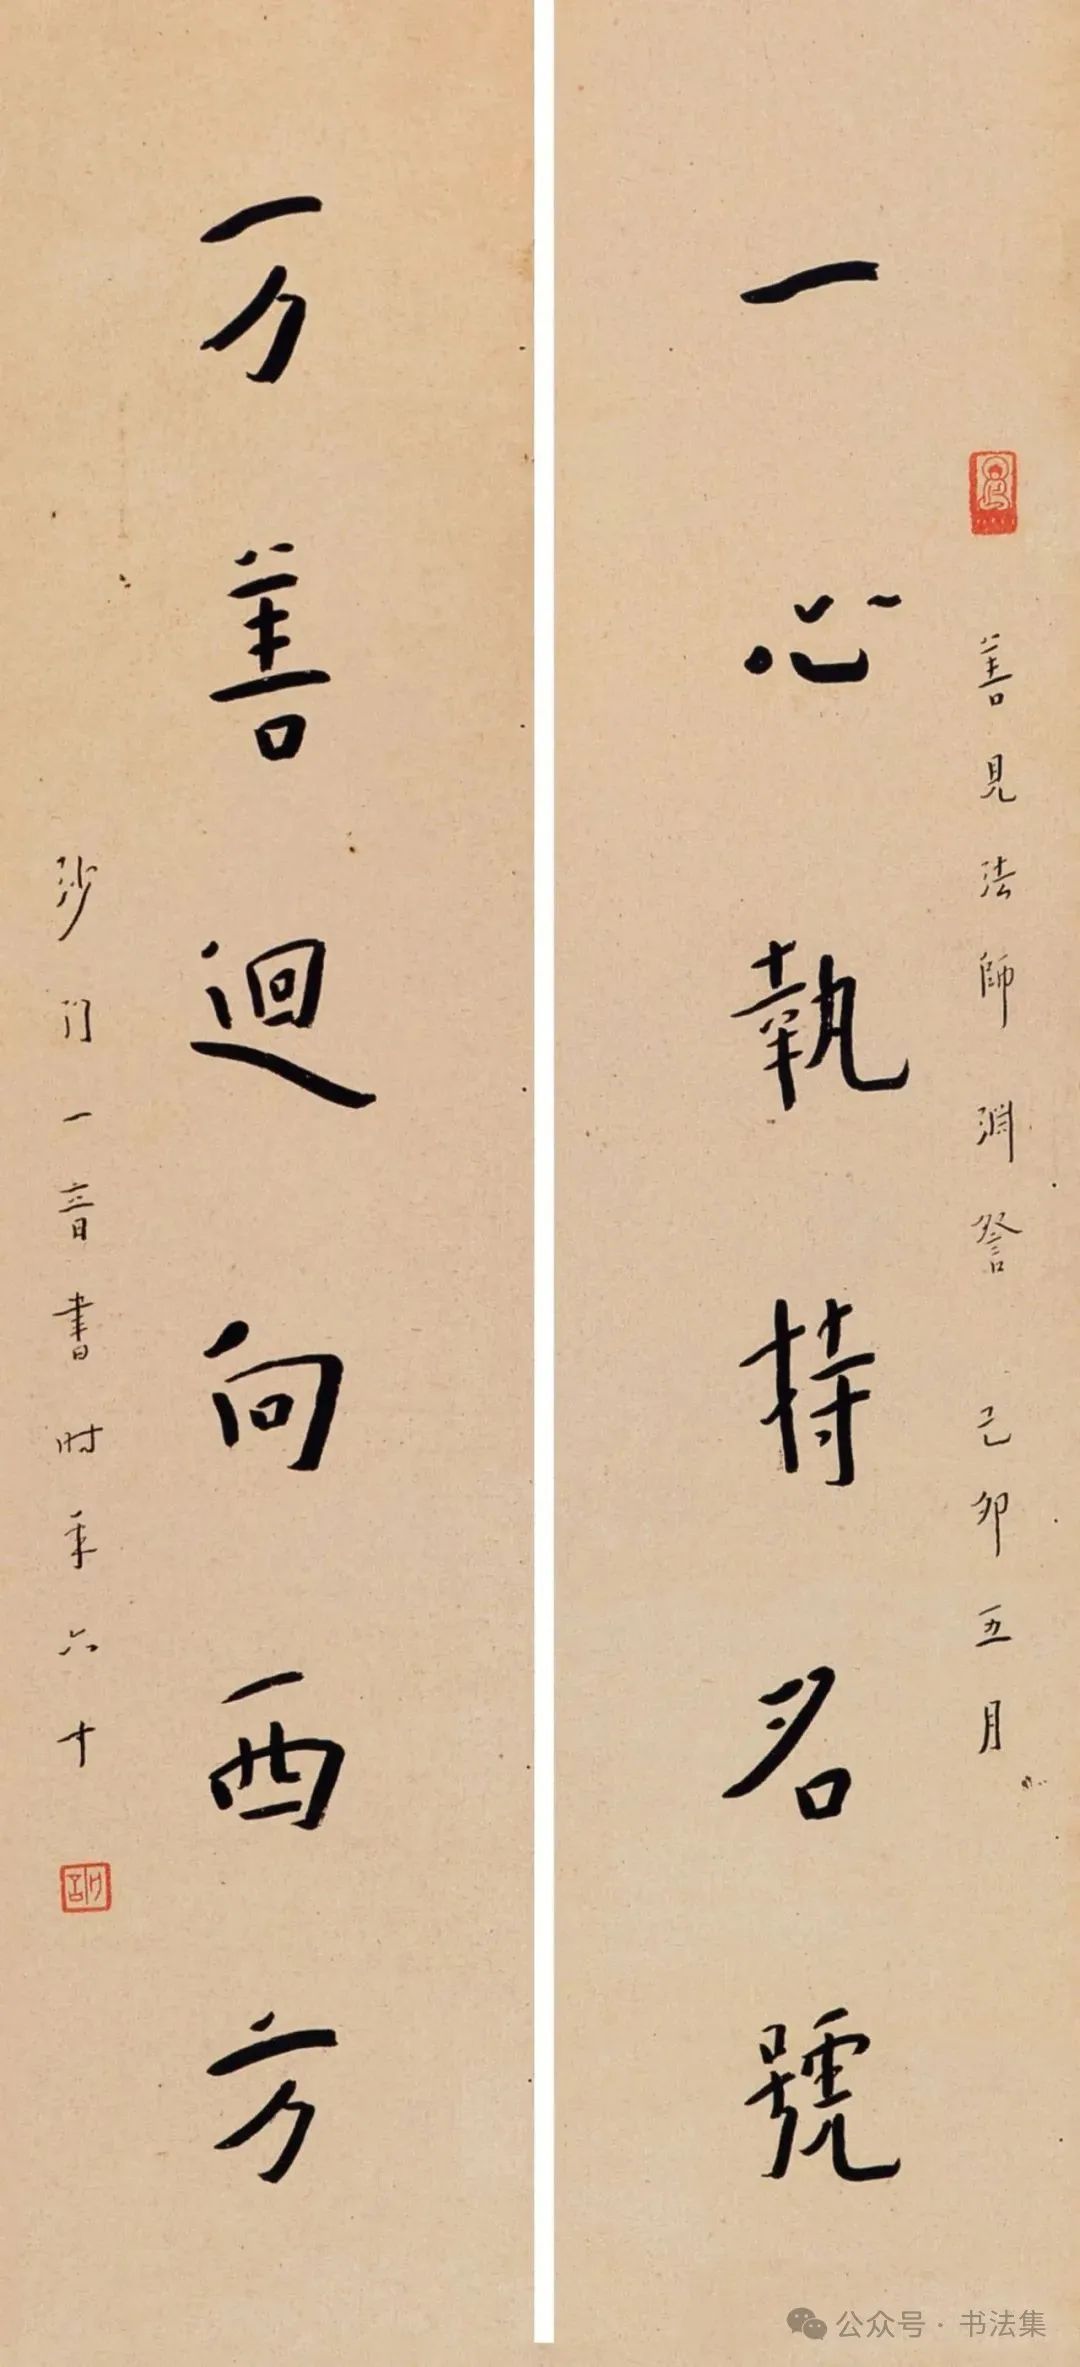 善見法師淵詧 己卯五月
一心執持名號
万善迴向西方
沙门一音書时年六十
公众号 · 书法集